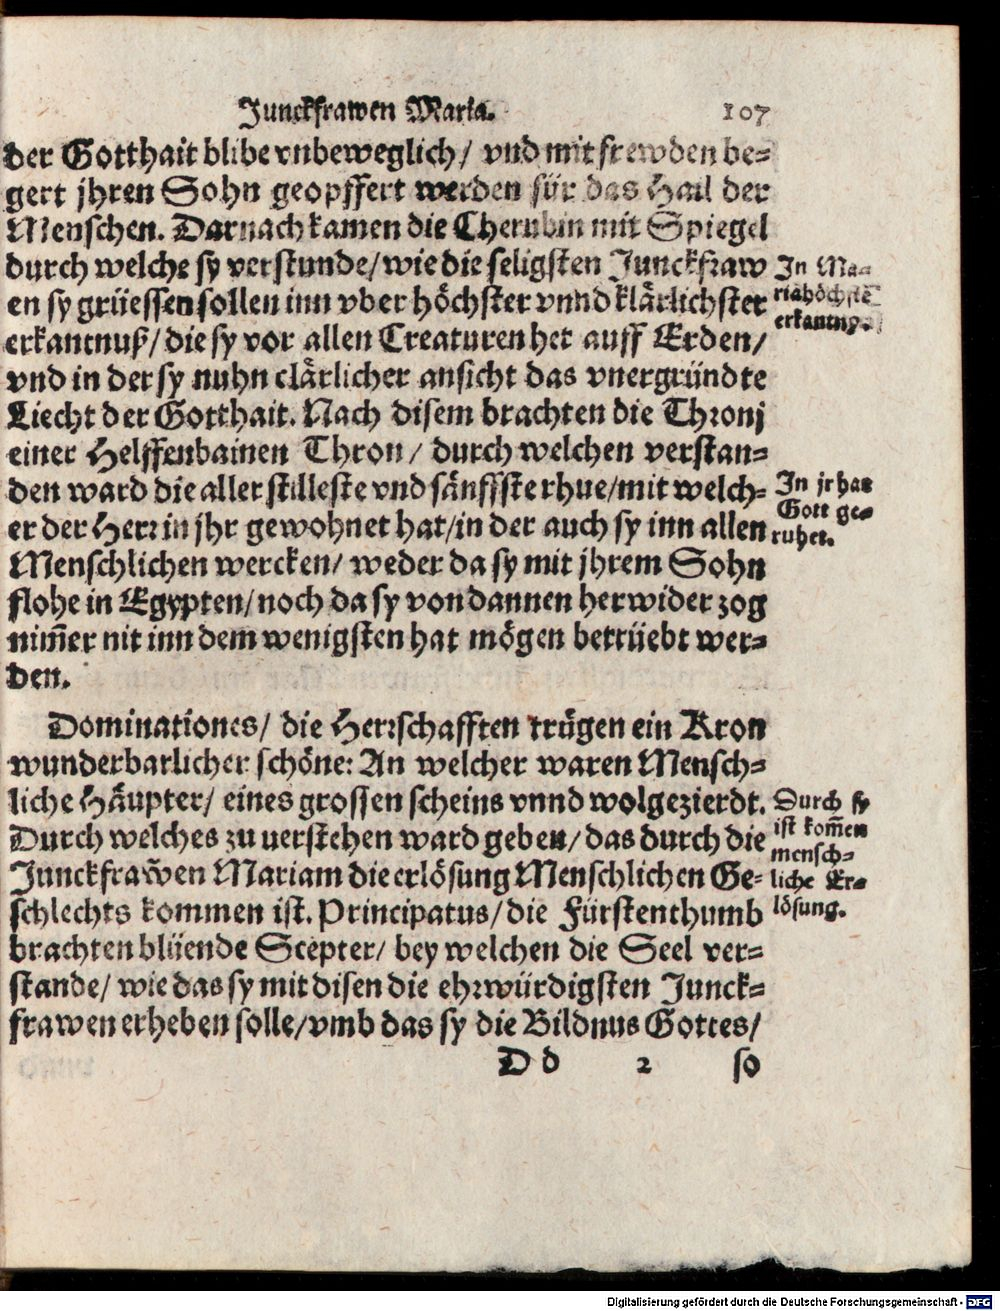 Junckfrawen Maria. 107
der Gotthait blibe vnbeweglich/ vnd mit frewden be-
gert jhren Sohn geopffert werden für das Hail der
Menschen. Darnach kamen die Cherubin mit Spiegel
durch welche sy verstunde/ wie die seligsten Junckfraw
en sy grüessen sollen inn vber höchster vnnd klärlichster
erkantnuß/ die sy vor allen Creaturen het auff Erden/
vnd in der sy nuhn clärlicher ansicht das vnergründte
Liecht der Gotthait. Nach disem brachten die Thronj
einer Helffenbainen Thron/ durch welchen verstan-
den ward die aller stilleste vnd sänffste rhue/ mit welch-
er der Herr in jhr gewohnet hat/ in der auch sy inn allen
Menschlichen wercken/ weder da sy mit jhrem Sohn
flohe in Egypten/ noch da sy von dannen herwider zog
nim̄er nit inn dem wenigsten hat mögen betrüebt wer-
den.
In Ma-
ria höchste
erkantnyß.
In jr hat
Gott ge-
ruhet.
Dominationes/ die Herrschafften trügen ein Kron
wunderbarlicher schöne: An welcher waren Mensch-
liche Häupter/ eines grossen scheins vnnd wolgezierdt.
Durch welches zu uerstehen ward geben/ das durch die
Junckfraw̃en Mariam die erlösung Menschlichen Ge-
schlechts kommen ist. Principatus/ die Fürstenthumb
brachten blüende Scepter/ bey welchen die Seel ver-
stande/ wie das sy mit disen die ehrwürdigsten Junck-
frawen erheben solle/ vmb das sy die Bildnus Gottes/
Durch sy
ist kom̄en
mensch-
liche Er-
lösung.
D d 2 so
Digitalisierung gefördert durch die Deutsche Forschungsgemeinschaft - DFG